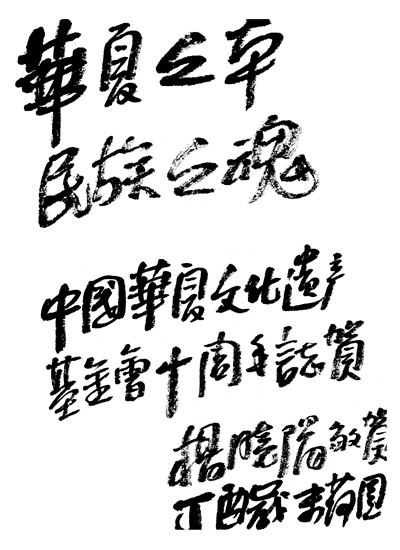 華夏之本
民族之魂
中國華夏文化遺产
基金會十周年誌賀
楊曉陽敬賀
丁酉歲末